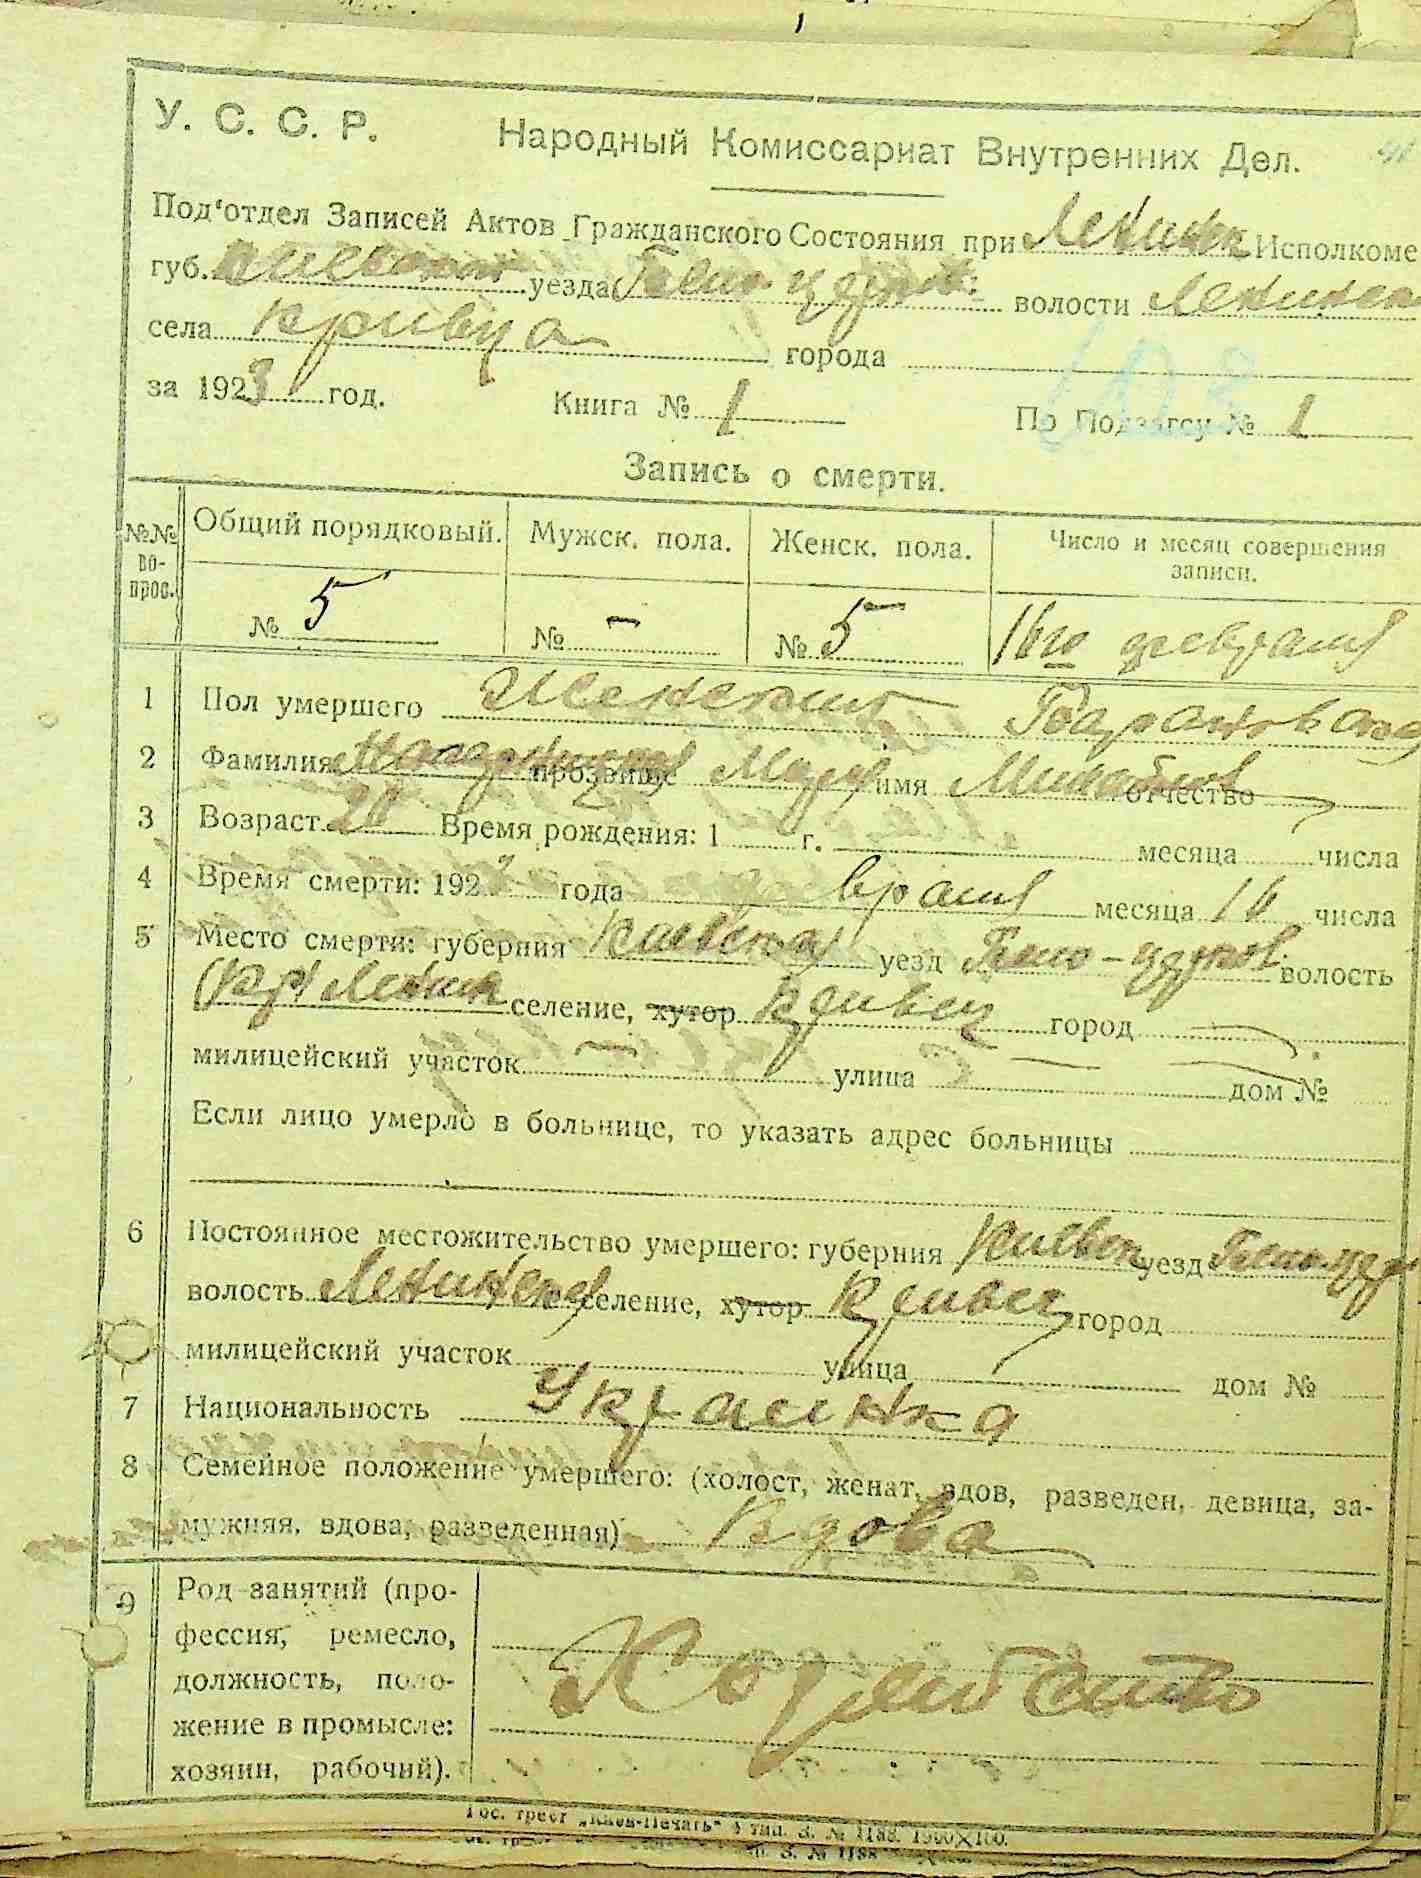 У. С. С. Р. Народный Комиссариат Внутренних Дел.
Под'отдел Записей Актов Гражданского Состояния при Ленинск Исполкоме
губ. Киевской уезда Бело-церков. волости Ленинск
села Кривца города
за 1923 год. Книга № 1 По Подзагсу № 1
Запись о смерти.
№№ вопрос. Общий порядковый. Мужск. пола. Женск. пола. Число и месяц совершения записи.
№ 5 № — № 5 16го февраля
1 Пол умершего Женский Барановская
2 Фамилия прозвище Мария имя Михайлов отчество
3 Возраст Время рождения: 1 г. месяца числа
4 Время смерти: 1923 года февраля месяца 16 числа
5 Место смерти: губерния Киевская уезд Бело-церков. волость
Ленинск селение, хутор Кривец город —
милицейский участок — улица — дом №
Если лицо умерло в больнице, то указать адрес больницы
6 Постоянное местожительство умершего: губерния Киевск уезд Бело-цер
волость Ленинская селение, хутор Кривец город
милицейский участок улица дом №
7 Национальность Украинка
8 Семейное положение умершего: (холост, женат, вдов, разведен, девица, за-
мужняя, вдова, разведенная) Вдова
9 Род занятий (про-
фессия, ремесло,
должность, поло-
жение в промысле:
хозяин, рабочий).
Гос. трест „Киев-Печать" 4 тип. З. № 1188. 1900X100.
З. № 1188